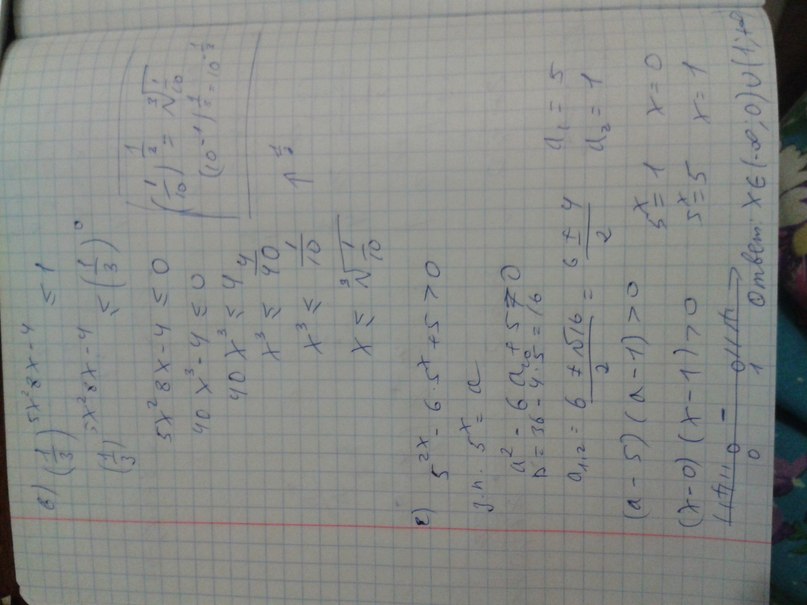 в) (1/3)^(5x²8x-4) ≤ 1
(1/3)^(5x²8x-4) ≤ (1/3)^0
5x²8x-4 ≤ 0
40x³-4 ≤ 0
40x³ ≤ 4
x³ ≤ 4/40
x³ ≤ 1/10
x ≤ ∛(1/10)
(1/10)^(1/3) = ∛(1/10)
(10^(-1))^(1/3) = 10^(-1/3)
г) 5^(2x) - 6·5^x + 5 > 0
з.п. 5^x = a
a² - 6a + 5 > 0
D = 36 - 4·5 = 16
a1,2 = (6 ± √16)/2 = (6 ± 4)/2
a1 = 5
a2 = 1
(a-5)(a-1) > 0
5^x = 1 x = 0
(x-0)(x-1) > 0
5^x = 5 x = 1
+ - +
0 1
Ответ: x∈(-∞; 0)∪(1; +∞